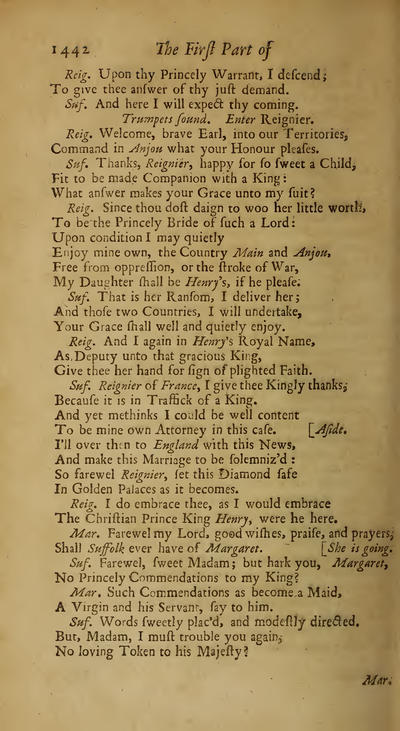 1442 The Firſt Part of
Reig. Upon thy Princely Warrant, I deſcend;
To give thee anſwer of thy juſt demand.
Suf. And here I will expect thy coming.
Trumpets ſound. Enter Reignier.
Reig. Welcome, brave Earl, into our Territories,
Command in Anjou what your Honour pleaſes.
Suf. Thanks, Reignier, happy for ſo ſweet a Child,
Fit to be made Companion with a King:
What anſwer makes your Grace unto my ſuit?
Reig. Since thou doſt daign to woo her little worth,
To be the Princely Bride of ſuch a Lord:
Upon condition I may quietly
Enjoy mine own, the Country Main and Anjou,
Free from oppreſſion, or the ſtroke of War,
My Daughter ſhall be Henry's, if he pleaſe.
Suf. That is her Ranſom, I deliver her;
And thoſe two Countries, I will undertake,
Your Grace ſhall well and quietly enjoy.
Reig. And I again in Henry's Royal Name,
As Deputy unto that gracious King,
Give thee her hand for ſign of plighted Faith.
Suf. Reignier of France, I give thee Kingly thanks;
Becauſe it is in Traffick of a King.
And yet methinks I could be well content
To be mine own Attorney in this caſe. [Aſide.
I'll over then to England with this News,
And make this Marriage to be ſolemniz'd:
So farewel Reignier, ſet this Diamond ſafe
In Golden Palaces as it becomes.
Reig. I do embrace thee, as I would embrace
The Chriſtian Prince King Henry, were he here.
Mar. Farewel my Lord, good wiſhes, praiſe, and prayers,
Shall Suffolk ever have of Margaret. [She is going.
Suf. Farewel, ſweet Madam; but hark you, Margaret,
No Princely Commendations to my King?
Mar. Such Commendations as become a Maid,
A Virgin and his Servant, ſay to him.
Suf. Words ſweetly plac'd, and modeſtly directed.
But, Madam, I muſt trouble you again,
No loving Token to his Majeſty?
Mar.